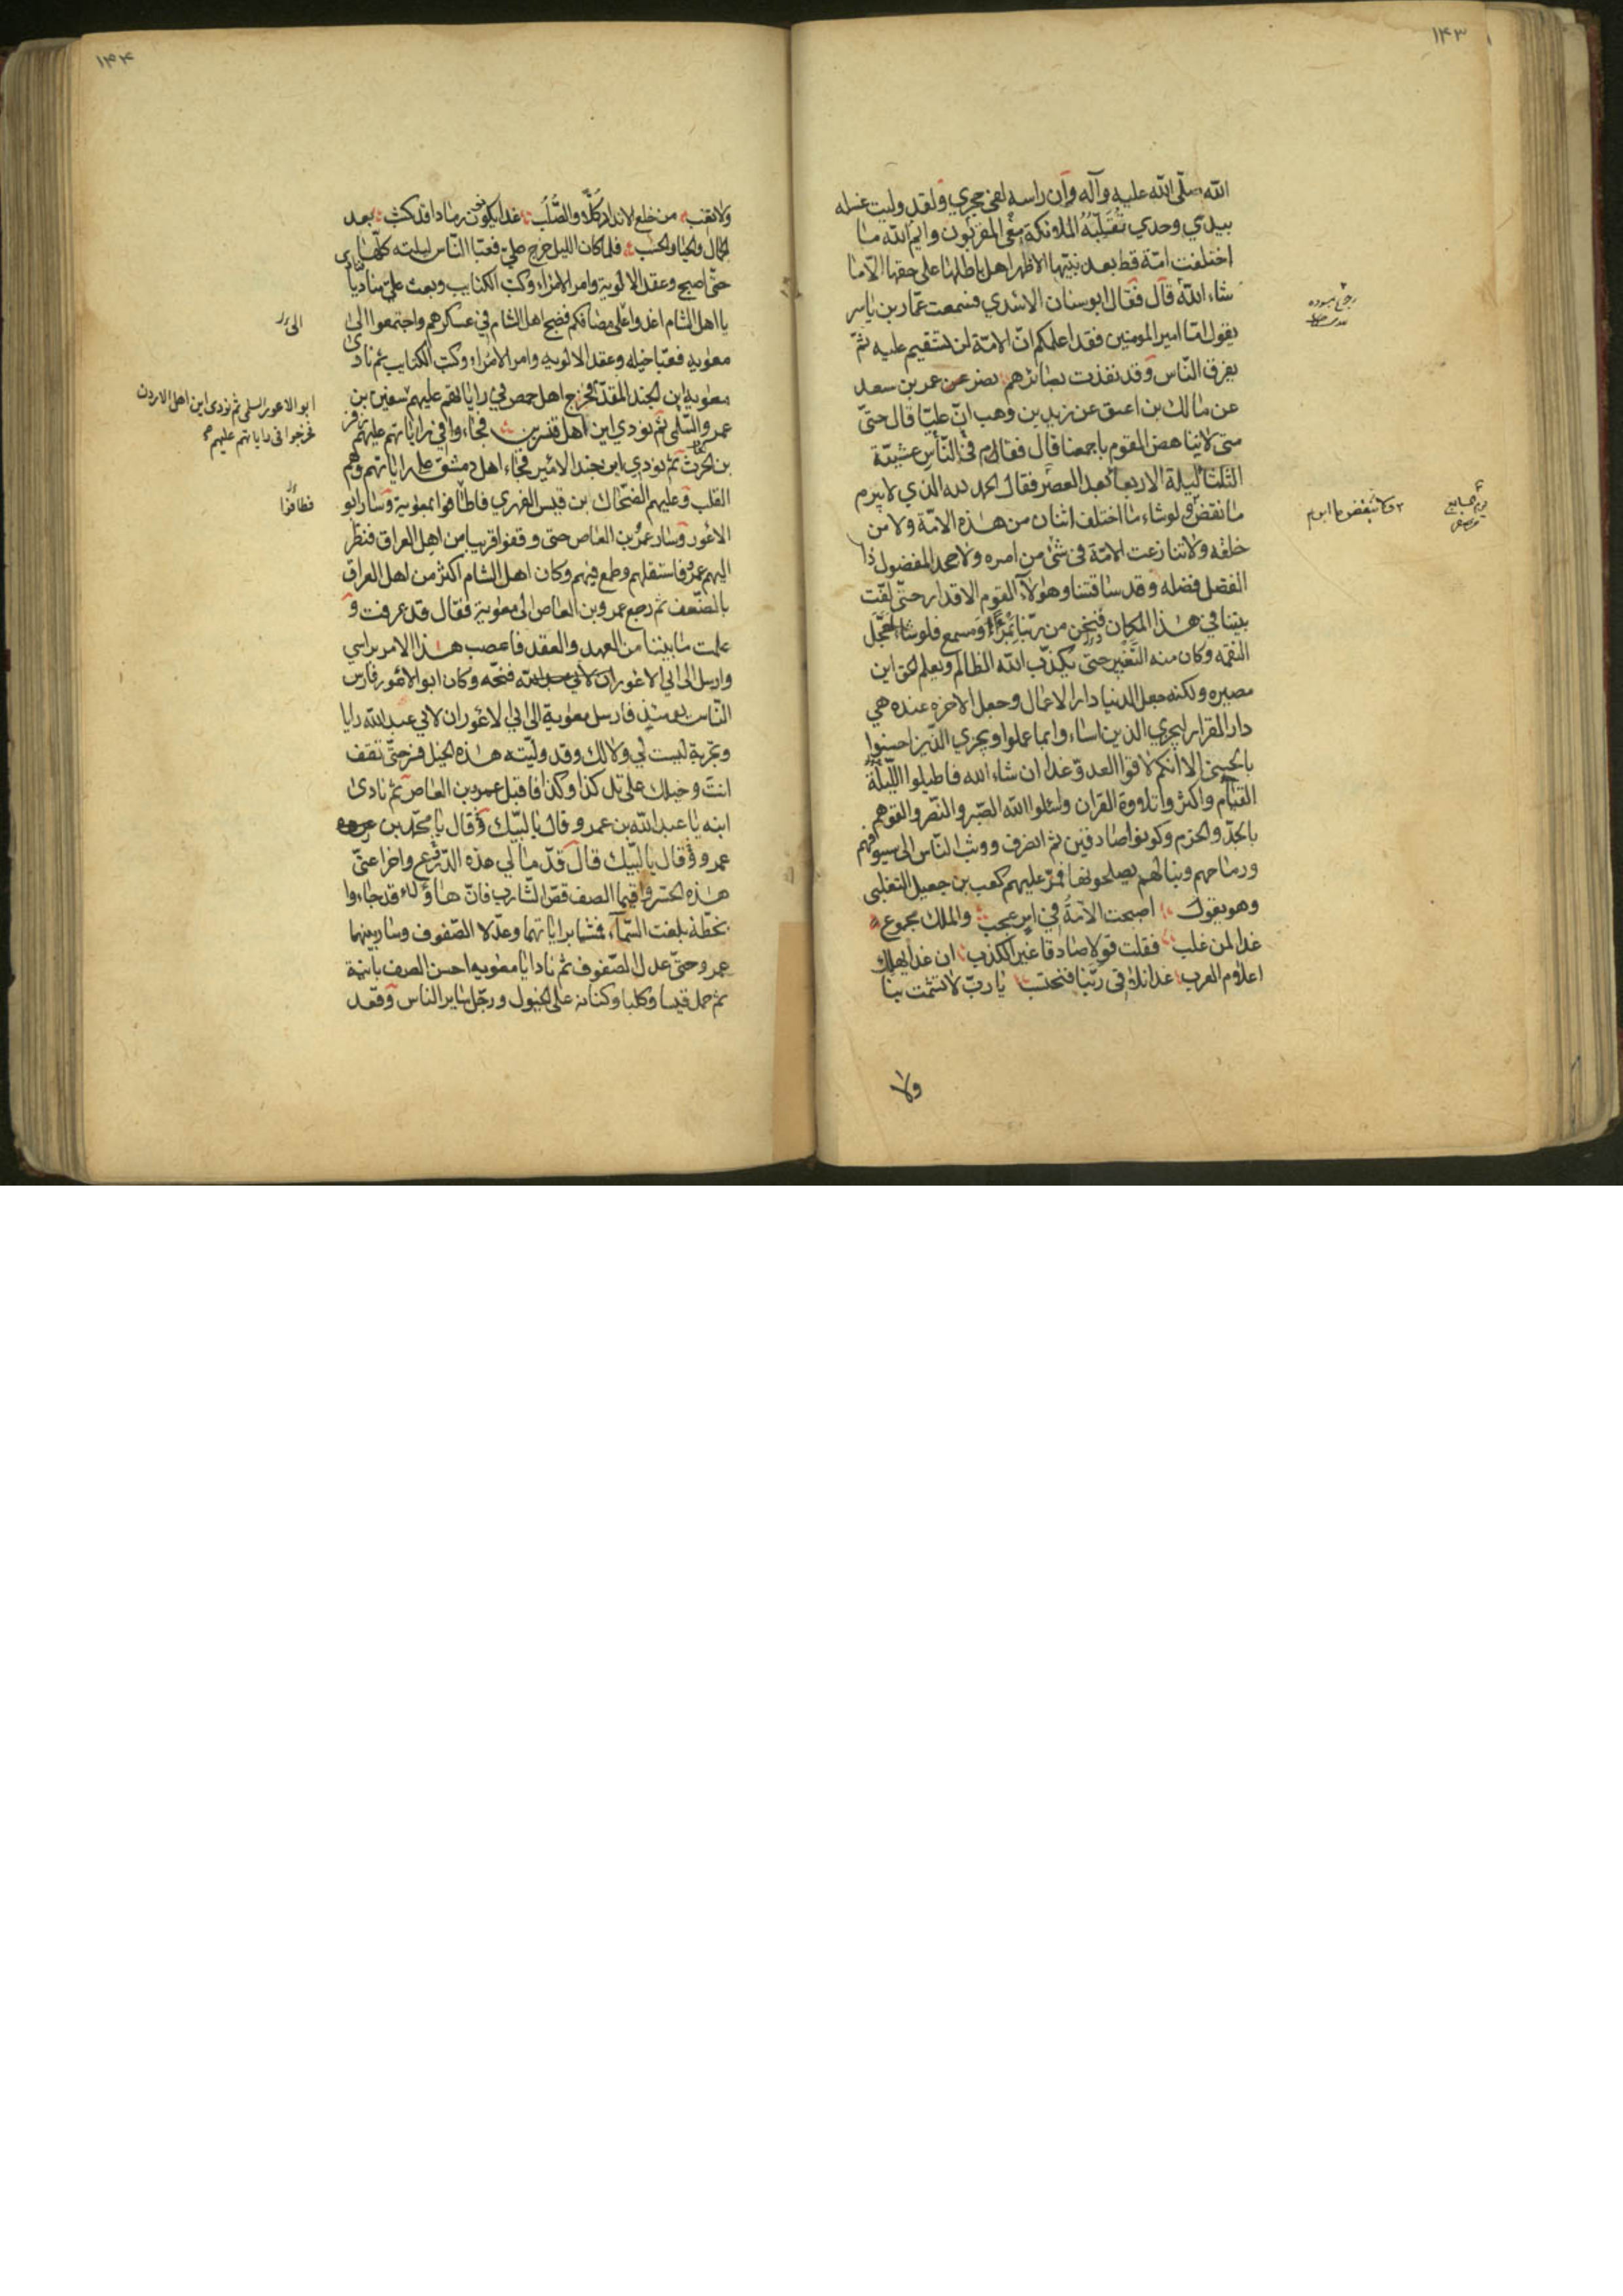 ١٤٣
الله صلّى الله عليه وآله وان راسه لفي حجري ولقد وليت غسله
بيدي وحدي تُقَلِّبُهُ الملائكة المقربون معي وايم الله ما
اختلفت امّة قط بعد نبيّها الا ظهر اهل باطلها على حقها الّا ما
شاء الله قال فقال ابو سنان الاسدي فسمعت عمّار بن ياسر
يقول امّا امير المومنين فقد اعلمكم انّ الامّة لن تستقيم عليه ثمّ
يفرق النّاس وقد نفذت بصائرهم نصر عن عمر بن سعد
عن مالك بن اعين عن زيد بن وهب انّ عليّا قال حتّى
متى لا يناهض القوم باجمعنا قال فقام في النّاس عشيّة
الثلثا ليلة الاربعا بعد العصر فقال الحمد لله الذي لا يبرم
ما نقض ولو شاء ما اختلف اثنان من هذه الامّة ولا من
خلقه ولا تنازعت الامّة في شئ من امره ولا جحد المفضول ذا
الفضل فضله وقد ساقتنا وهولاء القوم الاقدار حتّى لفّت
بيننا في هذا المكان فنحن من ربّنا بمرأى ومسمع فلو شاء لعجّل
النقمه وكان منه التَّغْيير حتى يكذّب الله الظالم ويعلم الحق اين
مصيره ولكنه جعل الدنيا دار الاعمال وجعل الاخره عنده هي
دار القرار ليجزي الذين اساءوا بما عملوا ويجزي الذّين احسنوا
بالحسنى الا انكم لاقوا العدوّ غدا ان شاء الله فاطيلوا اللّيلة
القيام واكثروا تلاوة القران واسئلوا الله الصّبر والنّصر والقوهم
بالجدّ والحزم وكونوا صادقين ثم انصرف ووثب النّاس الى سيوفهم
ورماحهم ونبالهم يصلحونها فمرّ عليهم كعب بن جعيل التغلبى
وهو يقول اصبحت الامّةُ في امر عجب والملك مجموع
غدا لمن غلب فقلت قولا صادقا غير الكذب ان غدا يهلك
اعلام العرب غدا نلاقى ربّنا فنحتسب يا ربّ لا تشمت بنا
ولا
١٤٤
ولا تقب من خلع الانداد كلّا والصُّلُب غدا يكون رمادا قد كثب بعد
الجمال والحيا والحسب فلما كان الليل خرج علي فعبّا النّاس ليلته كلّها
حتّى اصبح وعقد الالوية وامر الامراء وكتب الكتايب وبعث علىّ مناديا
يا اهل الشام اغدوا على مصافكم فضج اهل الشام في عسكرهم واجتمعوا الى
معوية فعبّا خيله وعقد الالويه وامر الامراء وكتب الكتايب ثم نادى
معوية اين الجند المقدّم فخرج اهل حمص في راياتهم عليهم
ابو الاعور السلمى ثم نودى اين اهل الاردن
فخرجوا فى راياتهم عليهم
سفين بن
عمرو السّلمى ثم نودي اين اهل قنسرين فجاءوا في راياتهم عليهم زفر
بن الحرث ثم نودي اين جند الامير فجاء اهل دمشق على راياتهم وهم
القلب وعليهم الضّحاك بن قيس الفهري فاطافوا بمعوية وسار ابو
الاعور وسار عمرو بن العاص حتى وقفوا قريبا من اهل العراق فنظر
اليهم عمرو فاستقلهم وطمع فيهم وكان اهل الشام اكثر من اهل العراق
بالضّعف ثم رجع عمرو بن العاص الى معوية فقال قد عرفت و
علمت ما بيننا من العهد والعقد فاعصب هذا الامر براسي
وارسل الى ابي الاعور فنحّه وكان ابو الاعور فارس
النّاس يومئذ فارسل معوية الى ابي الاعور ان لابي عبد الله رايا
وتجربة ليست لي ولا لك وقد ولّيته هذه الخيل فسر حتّى تقف
انت وخيلك على تل كذا وكذا فاقبل عمرو بن العاص ثم نادى
ابنه يا عبد الله بن عمرو قال يا لبّيك وقال يا محمّد بن
عمرو وقال يا لبّيك قال قدّما لي هذه الدّرّع واخرا عنّى
هذه الحسر واقيما الصف قصّ الشّارب فانّ هاؤلاء قد جاءوا
بخطّة بلغت السّماء فمشيا براياتهما وعدّلا الصّفوف وسار بينهما
عمرو حتّى عدل الصّفوف ثم نادا يا معويه احسن الصف بابنية
ثم حمل قيسا وكلبا وكنانه على الخيول ورجّل ساير الناس وقعد